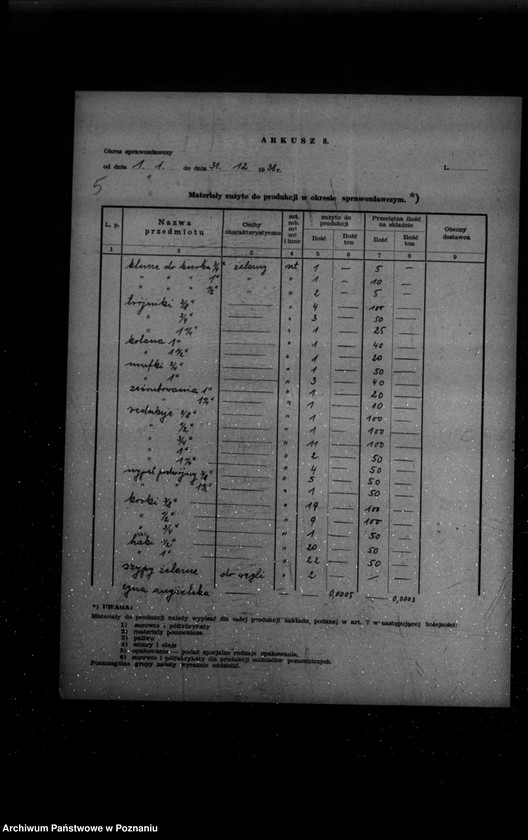 ARKUSZ 8.
Okres sprawozdawczy
od dnia 1. 1. do dnia 31. 12 1938 r. L.
5
Materiały zużyte do produkcji w okresie sprawozdawczym. *)
L. p. Nazwa przedmiotu Cechy charakterystyczne szt. mb. m² m³ i inne zużyto do produkcji Przeciętna ilość na składzie Obecny dostawca
Ilość Ilość ton Ilość Ilość ton
1 2 3 4 5 6 7 8 9
klucze do kurka 3/4" żelazny szt 1 — 5 —
" " " 1" " " 1 — 10 —
" " " " 2 — 5 —
trójniki " 4 — 100 —
" 3/4" — " 3 — 50 —
" — " 1 — 25 —
kolana 1" — " 1 — 40 —
" — " 1 — 20 —
mufki 3/4" — " 1 — 50 —
" 1" — " 3 — 40 —
1" — " 1 — 20 —
" — " 1 — 10 —
redukcje 3/8" — " 1 — 100 —
" 1/2" — " 1 — 100 —
" 3/4" — " 11 — 100 —
" 1" — " 2 — 50 —
" — " 4 — 50 —
nypel podwójny — " 5 — 50 —
" — " 1 — 50 —
korki — " 19 — 100 —
" 1/2" — " 9 — 100 —
" 3/4" — " 1 — 50 —
haki 1/2" — " 20 — 50 —
" 1" — " 22 — 50 —
szypy żelazne do węgli " 2 — —
cyna angielska — — — 0,0005 — 0,0003
*) UWAGA:
Materiały do produkcji należy wypisać dla całej produkcji zakładu, podanej w art. 7 w następującej kolejności:
1) surowce i półfabrykaty
2) materiały pomocnicze
3) paliwo
4) smary i oleje
5) opakowania — podać specjalne rodzaje opakowania.
6) surowce i półfabrykaty dla produkcji oddziałów pomocniczych.
Poszczególne grupy należy wyraźnie oddzielić.
Archiwum Państwowe w Poznaniu